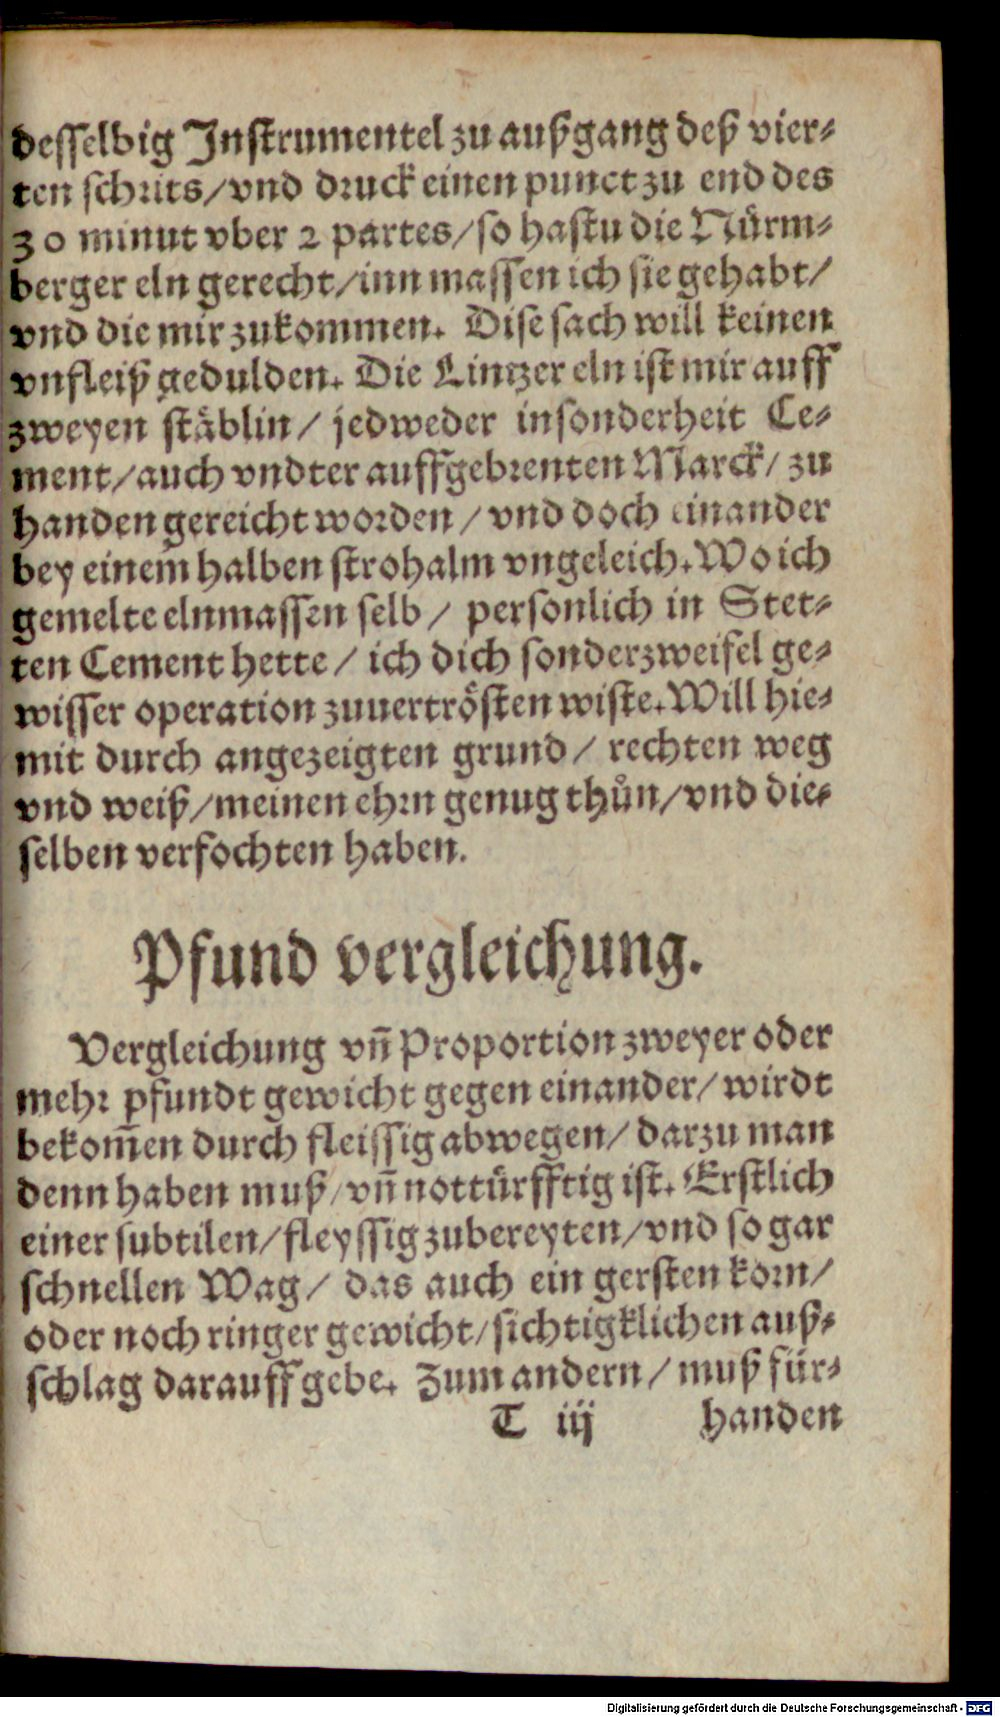 desselbig Instrumentel zu außgang deß vier-
ten schrits/vnd druck einen punct zu end des
30 minut vber 2 partes/so hastu die Nürm-
berger eln gerecht/inn massen ich sie gehabt/
vnd die mir zukommen. Dise sach will keinen
vnfleiß gedulden. Die Lintzer eln ist mir auff
zweyen stäblin/ jedweder insonderheit Ce-
ment/auch vndter auffgebrenten Marck/ zu
handen gereicht worden/ vnd doch einander
bey einem halben strohalm vngeleich. Wo ich
gemelte elnmassen selb/ personlich in Stet-
ten Cement hette/ ich dich sonder zweifel ge-
wisser operation zuuertrösten wiste. Will hie-
mit durch angezeigten grund/ rechten weg
vnd weiß/meinen ehrn genug thůn/vnd die-
selben verfochten haben.
Pfund vergleichung.
Vergleichung vn̄ Proportion zweyer oder
mehr pfundt gewicht gegen einander/ wirdt
bekom̄en durch fleissig abwegen/ darzu man
denn haben muß/vn̄ nottürfftig ist. Erstlich
einer subtilen/fleyssig zubereyten/vnd so gar
schnellen Wag/ das auch ein gersten korn/
oder noch ringer gewicht/sichtigklichen auß-
schlag darauff gebe. Zum andern/ muß für-
T iij handen
Digitalisierung gefördert durch die Deutsche Forschungsgemeinschaft - DFG